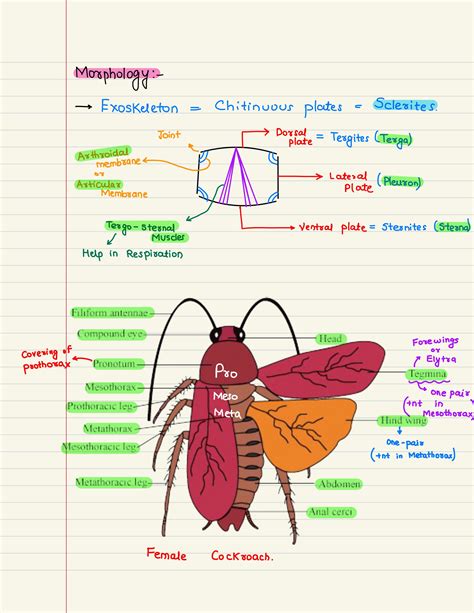 Morphology:-
→ Exoskeleton = Chitinuous plates = Sclerites.
Joint
Dorsal plate = Tergites (Terga)
Arthroidal membrane
or
Articular Membrane
Lateral plate (Pleuron)
Tergo-sternal Muscles
Ventral plate = Sternites (Sterna)
Help in Respiration
Filiform antennae
Compound eye
Head
Forewings
or
Elytra
Covering of prothorax
Pronotum
Pro
Tegmina
Mesothorax
Meso
one pair
(+nt in Mesothorax)
Prothoracic leg
Meta
Metathorax
Hind wing
Mesothoracic leg
one-pair
(+nt in Metathorax)
Metathoracic leg
Abdomen
Anal cerci
Female Cockroach.